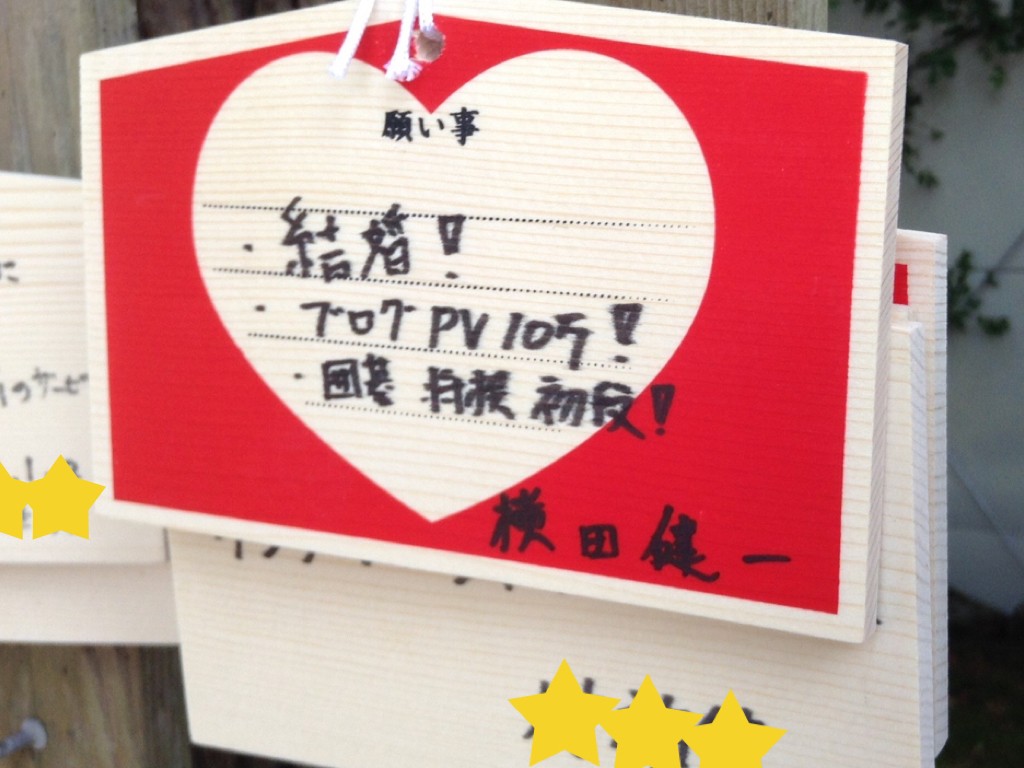 願い事
・結婚!
・ブログ PV 10万!
・囲碁 将棋 初段!
横田健一
に
のサービ